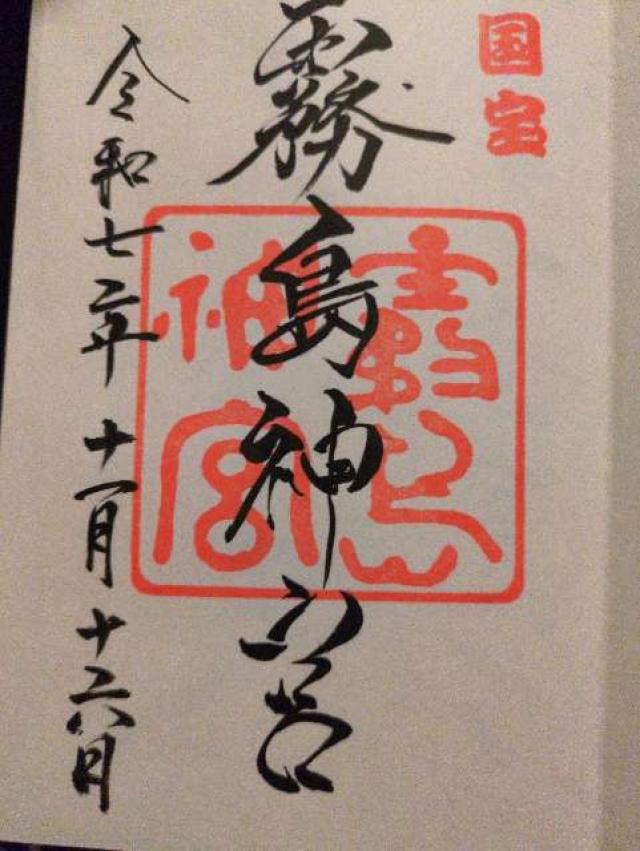 国宝
霧島神宮
霧島
神宮
令和七年十一月十六日